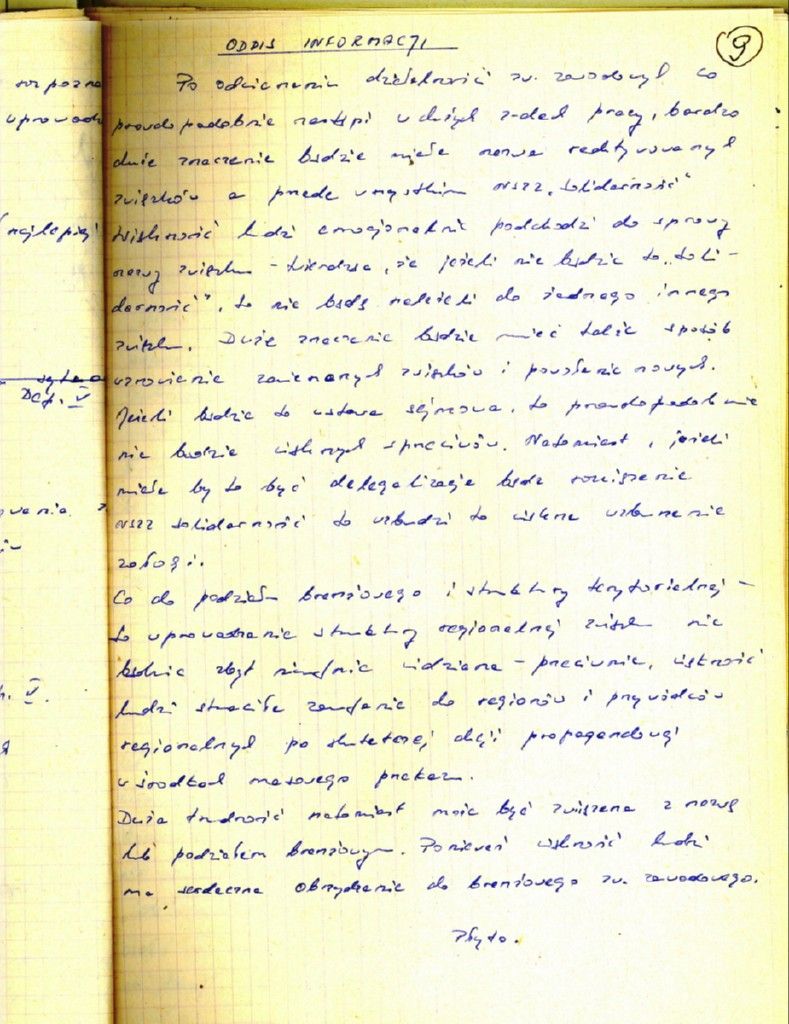 9
ODPIS INFORMACJI
Po odwieszeniu działalności zw. zawodowych co
prawdopodobnie nastąpi w dużych z-dach pracy, bardzo
duże znaczenie będzie miała nazwa reaktywowanych
związków a przede wszystkim NSZZ „Solidarność”
Większość ludzi emocjonalnie podchodzi do sprawy
nazwy związku – twierdzą, że jeżeli nie będzie to „Soli-
darność”, to nie będą należeli do żadnego innego
związku. Duże znaczenie będzie mieć także sposób
wznowienie zawieszonych związków i powołanie nowych.
Jeżeli będzie to ustawa sejmowa, to prawdopodobnie
nie będzie większych sprzeciwów. Natomiast, jeżeli
miała by to być delegalizacja bądź rozwiązanie
NSZZ Solidarność to wzbudzi to wielkie wzburzenie
załogi.
Co do podziału branżowego i struktury terytorialnej –
to wprowadzenie struktury regionalnej związku nie
będzie zbyt widziana – przeciwnie, większość
ludzi straciła zaufanie do regionów i przywódców
regionalnych po skutecznej akcji propagandowej
w środkach masowego przekazu.
Duża trudność natomiast może być związana z nazwą
lub podziałem branżowym. Ponieważ większość ludzi
ma serdeczne obrzydzenie do branżowego zw. zawodowego.
rozpozna
wprowadz
najlepiej
Dep. V
wania
V.